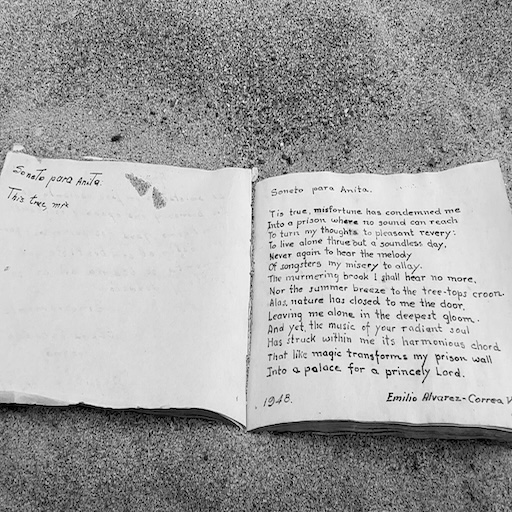 Soneto para Anita.
This true, mis
Soneto para Anita.
'Tis true, misfortune has condemned me
Into a prison where no sound can reach
To turn my thoughts to pleasant revery:
To live alone thrue but a soundless day,
Never again to hear the melody
Of songsters my misery to allay.
The murmering brook I shall hear no more,
Nor the summer breeze to the tree-tops croon.
Alas, nature has closed to me the door,
Leaving me alone in the deepest gloom.
And yet, the music of your radiant soul
Has struck within me its harmonious chord
That like magic transforms my prison wall
Into a palace for a princely Lord.
1948.
Emilio Alvarez-Correa V